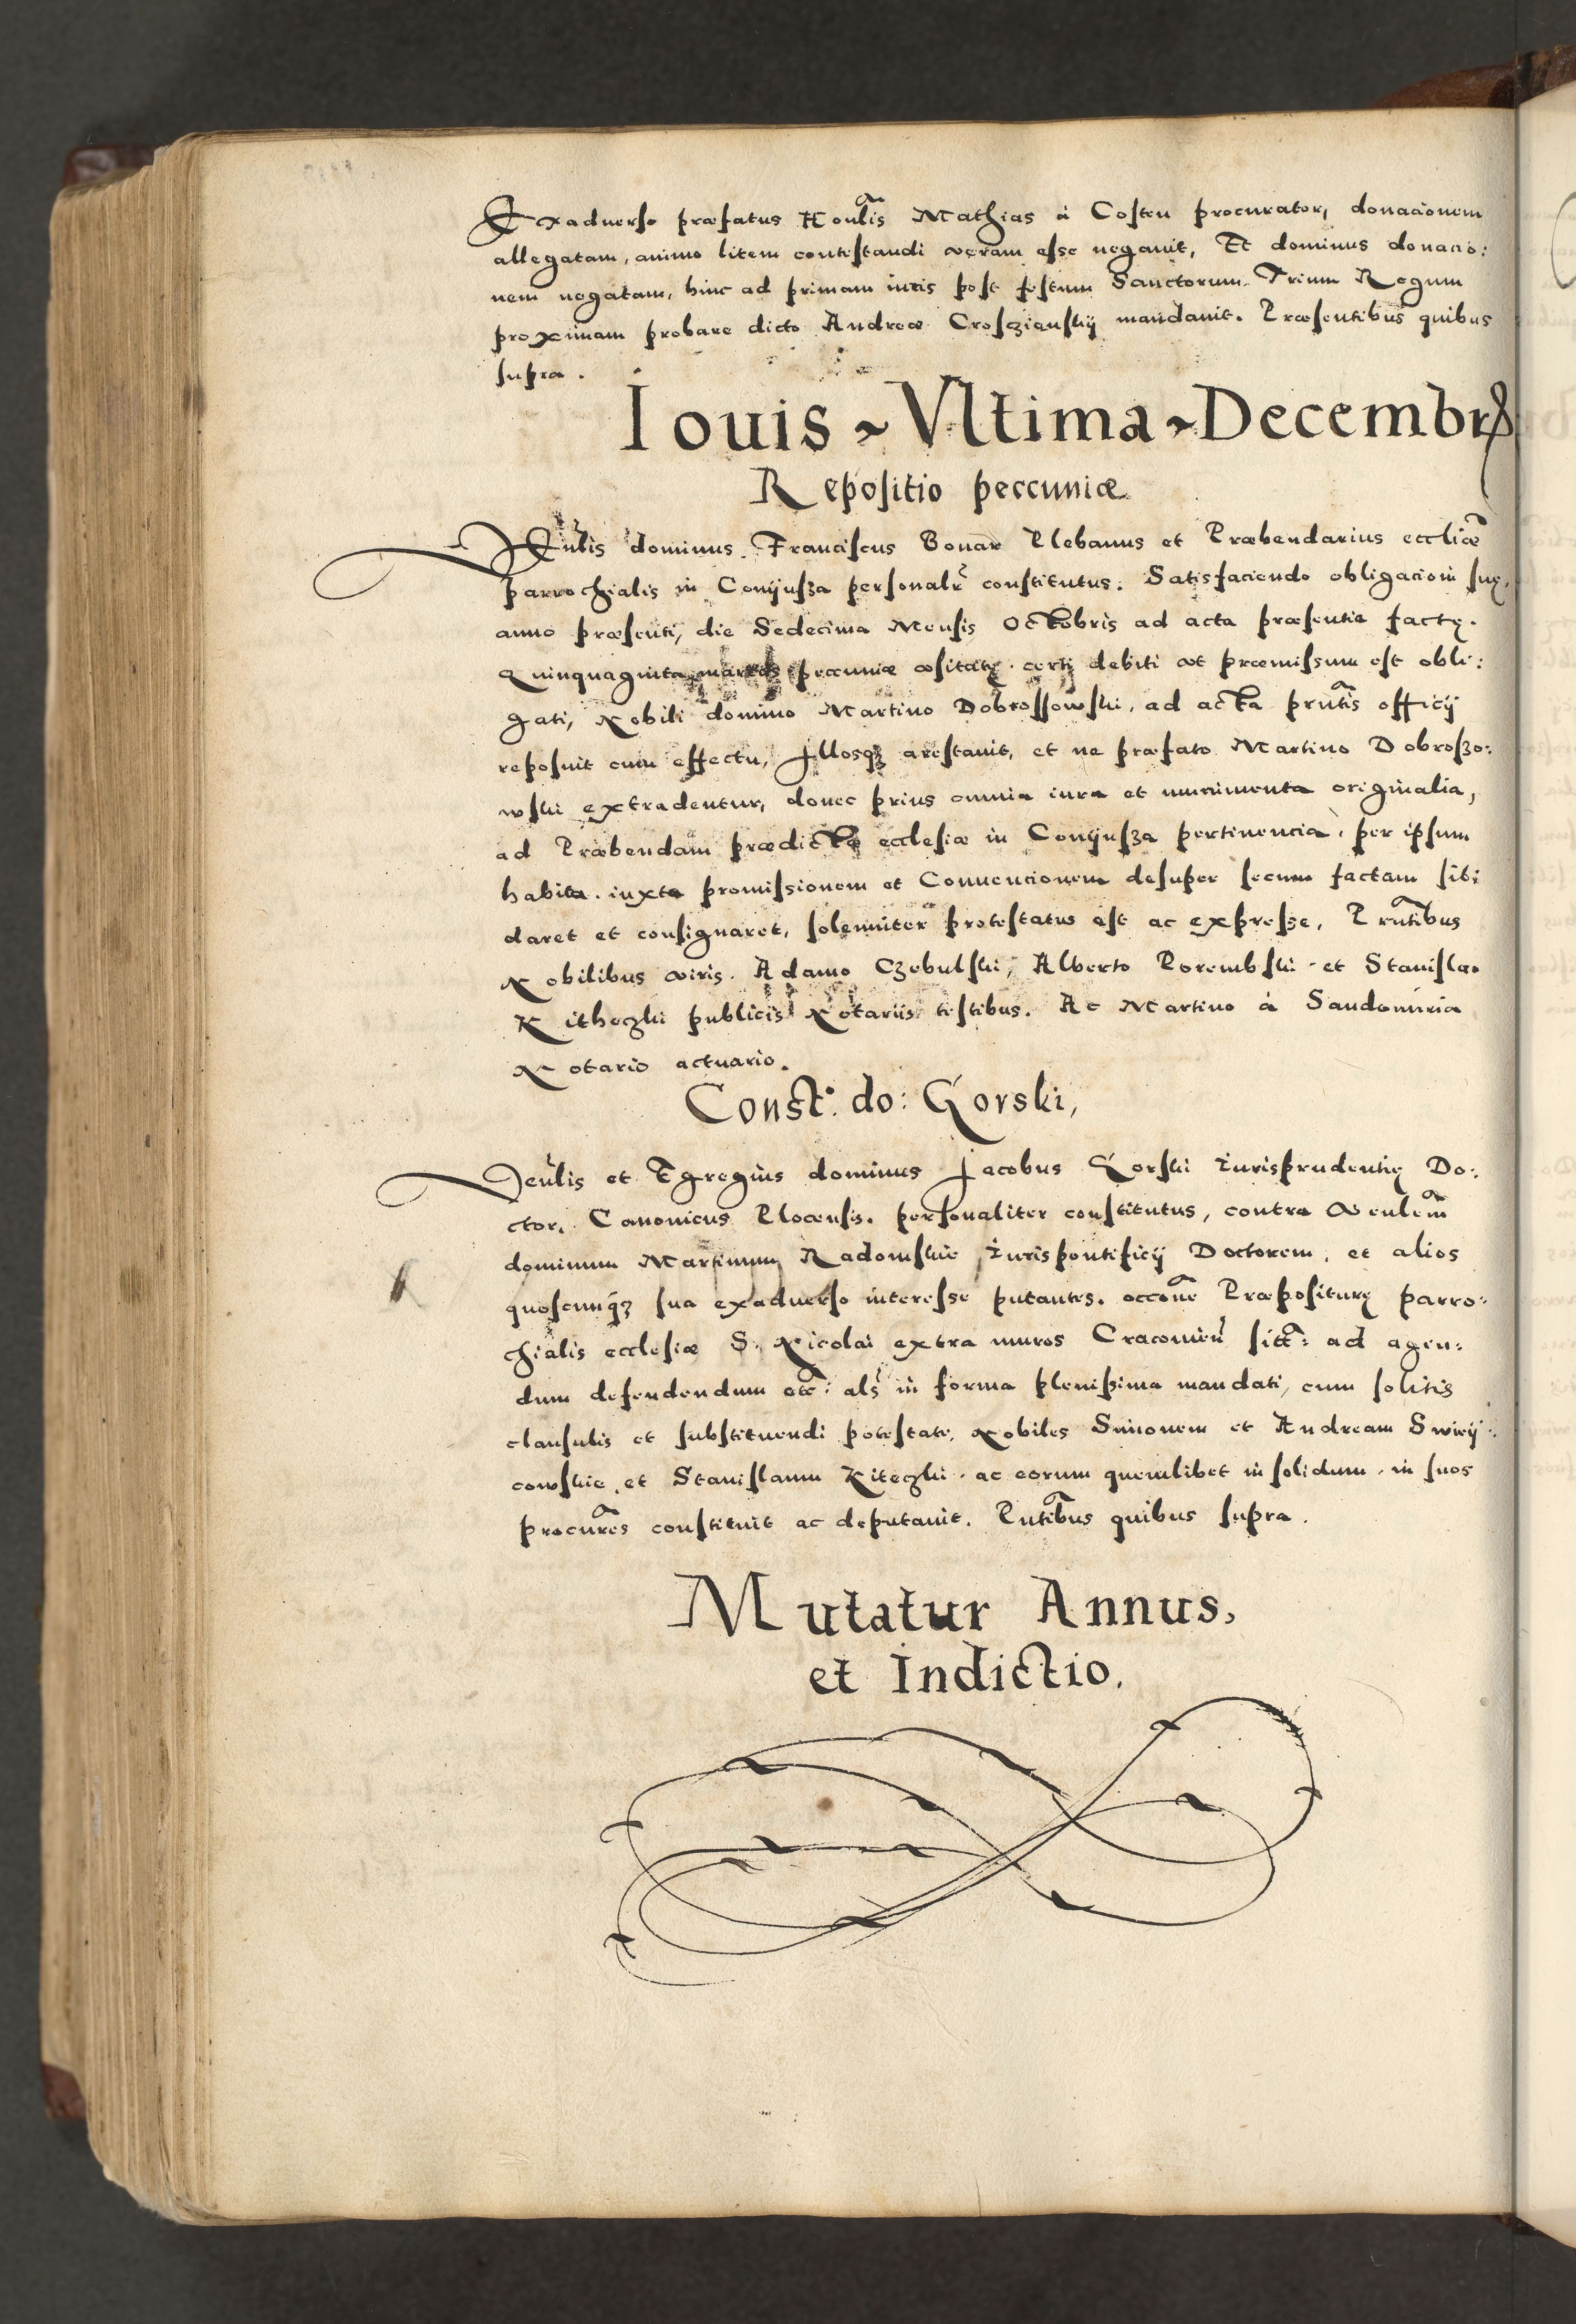 Exaduerso præfatus Honłis Mathias à Costen procurator, donacionem
allegatam, animo litem contestandi veram esse negauit, Et dominus donacio:
nem negatam, hinc ad primam iuris post festum Sanctorum Trium Regum
proximam probare dicto Andreæ Croszienskij mandauit. Præsentibus quibus
supra.
Iouis ~ Vltima ~ Decembris
Repositio peccuniæ
Venłis dominus Franciscus Bonar Plebanus et Præbendarius eccliæ
parrochialis in Conijusza personalr constitutus. Satisfaciendo obligacioni suę,
anno præsenti, die Sedecima Mensis Octobris ad acta præsentia factę.
Quinquaginta marcas pecuniæ vsitatę certi debiti vt præmissum est obli:
gati, Nobili domino Martino Dobrossowski, ad acta prntis officij
reposuit cum effectu, Illosqȝ arestauit, et ne præfato Martino Dobroszo:
wski extradentur, donec prius omnia iura et munimenta originalia,
ad Præbendam prædictæ ecclesiæ in Conijusza pertinencia, per ipsum
habita, iuxta promissionem et Conuencionem desuper secum factam sibi
daret et consignaret, solenniter protestatus est ac expresse, Prntibus
Nobilibus viris. Adamo Czebulski, Alberto Porembski et Stanislao
Kitheczki publicis Notariis testibus. Ac Martino à Sandomiria
Notario actuario.
Const: do: Gorski,
Venłis et Egregius dominus Jacobus Gorski Iurisprudentię Do:
ctor, Canonicus Plocensis. personaliter constitutus, contra Venlem
dominum Martinum Radomskie Iurispontificij Doctorem, et alios
quoscunqȝ sua exaduerso interesse putantes. occone Præpositurę parro:
chialis ecclesiæ S. Nicolai extra muros Cracouień sitt: ad agen:
dum defendendum etc: als in forma plenissima mandati, cum solitis
clausulis et substituendi potestate, Nobiles Simonem et Andream Swirij:
cowskie et Stanislaum Kiteczki ac eorum quemlibet in solidum, in suos
procures constituit ac deputauit. Pntibus quibus supra.
Mutatur Annus,
et Indictio.